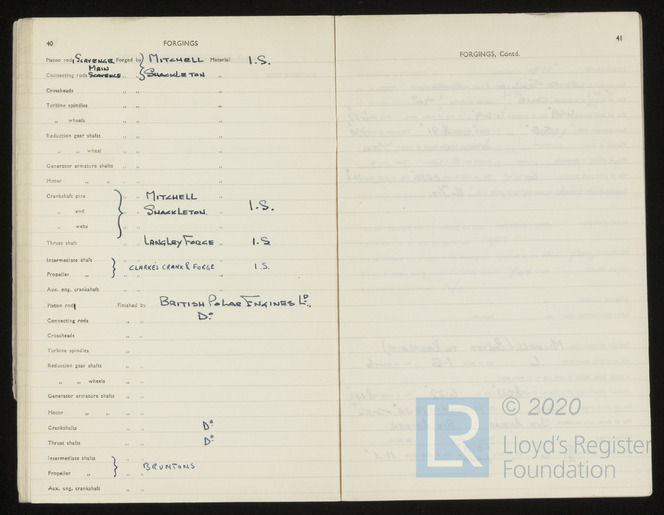 40
FORGINGS
Piston rods SCAVENGE Forged by } MITCHELL Material I.S.
MAIN
Connecting rods SCAVENGE „ „ } SHACKLETON „
Crossheads „ „ „
Turbine spindles „ „ „
„ wheels „ „ „
Reduction gear shafts „ „ „
„ „ wheel „ „ „
Generator armature shafts „ „ „
Motor „ „ „ „ „
Crankshaft pins } „ „ MITCHELL „
„ and „ „ SHACKLETON „ I.S.
„ webs „ „ „
Thrust shaft „ „ LANGLEY FORGE „ I.S
Intermediate shaft } „ „ CLARKE'S CRANK & FORGE I.S.
Propeller „ „ „ „
Aux. eng. crankshaft „ „ „
Piston rods Finished by BRITISH POLAR ENGINES Ld.,
Connecting rods „ „ Do
Crossheads „ „
Turbine spindles „ „
Reduction gear shafts „ „
„ „ wheels „ „
Generator armature shafts „ „
Motor „ „ „ „
Crankshafts „ „ Do
Thrust shafts „ „ Do
Intermediate shafts } „ „ BRUNTONS
Propeller „ „ „
Aux. eng. crankshaft „ „
41
FORGINGS, Contd.
LR
© 2020
Lloyd's Register
Foundation